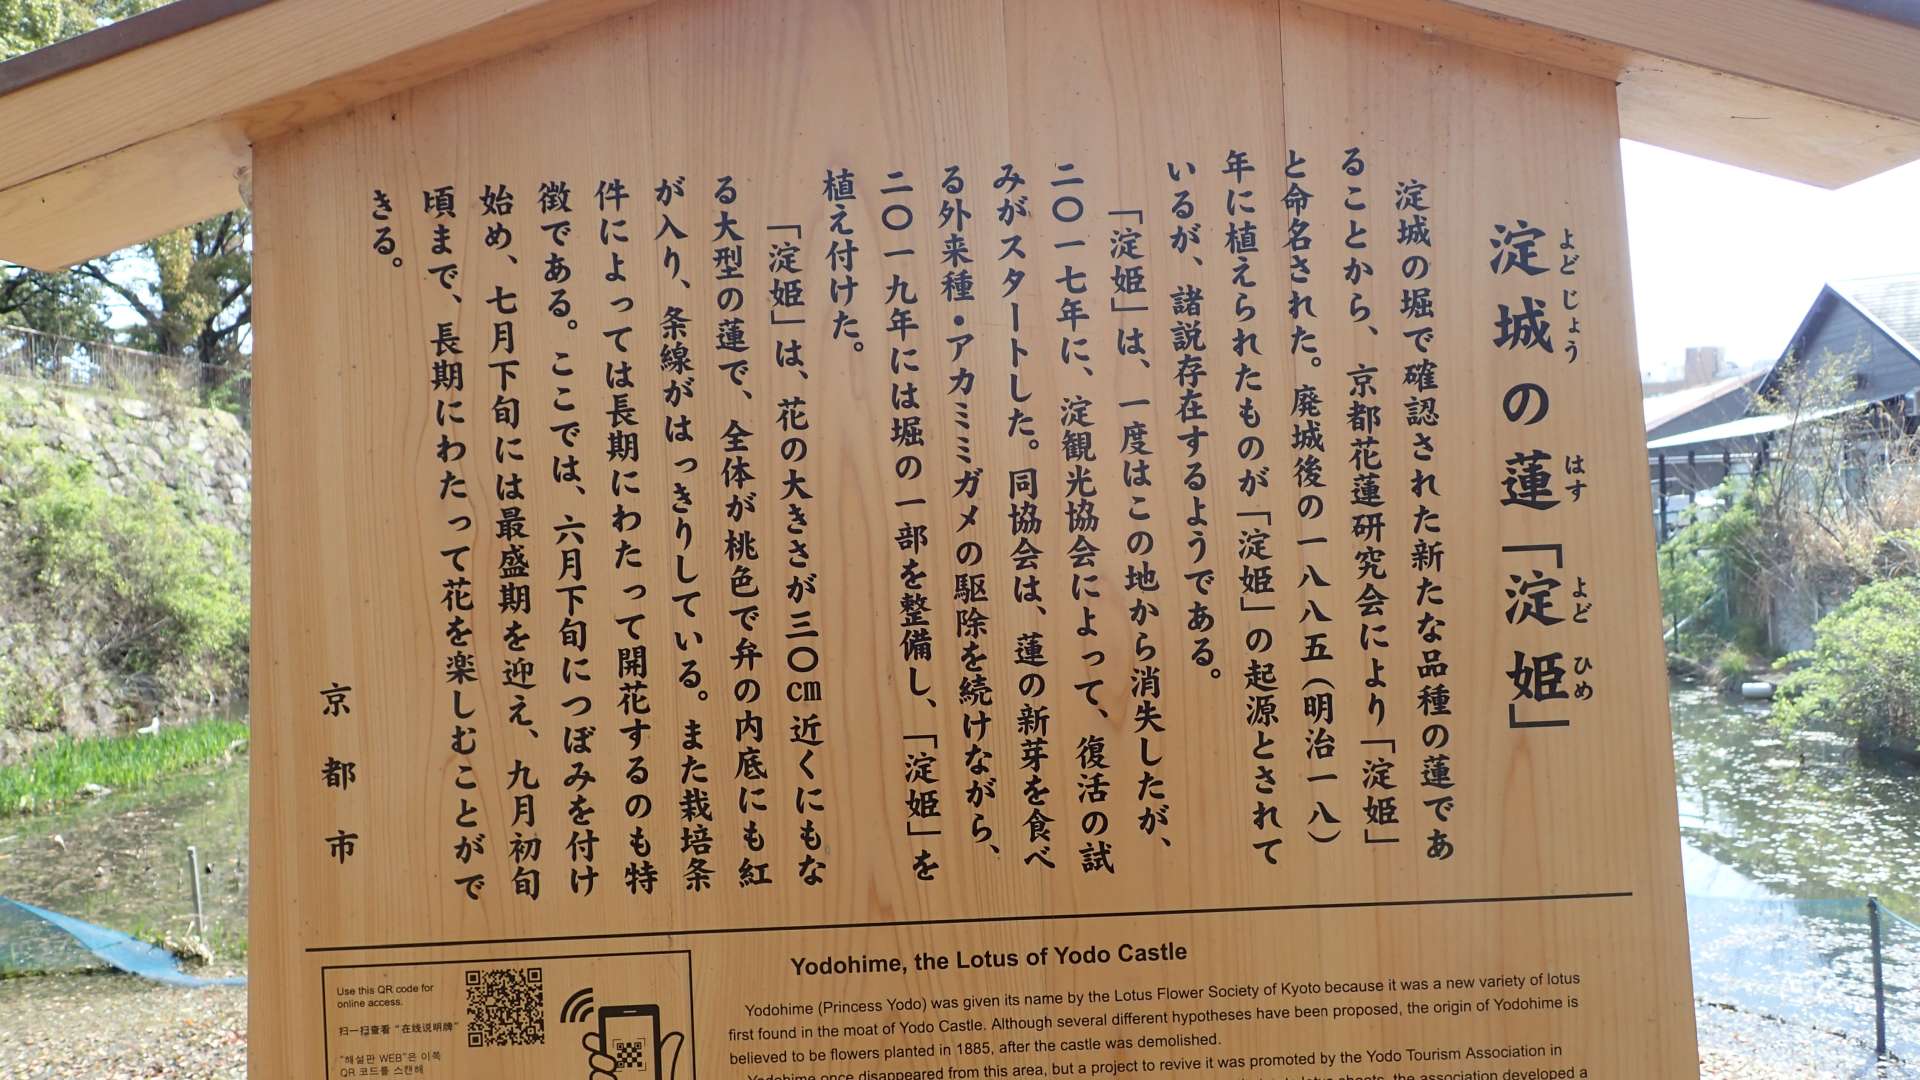 淀城の蓮「淀姫」
よどじょう
はす
よど
ひめ
淀城の堀で確認された新たな品種の蓮であ
ることから、京都花蓮研究会により「淀姫」
と命名された。廃城後の一八八五(明治一八)
年に植えられたものが「淀姫」の起源とされて
いるが、諸説存在するようである。
「淀姫」は、一度はこの地から消失したが、
二〇一七年に、淀観光協会によって、復活の試
みがスタートした。同協会は、蓮の新芽を食べ
る外来種・アカミミガメの駆除を続けながら、
二〇一九年には堀の一部を整備し、「淀姫」を
植え付けた。
「淀姫」は、花の大きさが三〇cm近くにもな
る大型の蓮で、全体が桃色で弁の内底にも紅
が入り、条線がはっきりしている。また栽培条
件によっては長期にわたって開花するのも特
徴である。ここでは、六月下旬につぼみを付け
始め、七月下旬には最盛期を迎え、九月初旬
頃まで、長期にわたって花を楽しむことがで
きる。
京都市
Use this QR code for
online access.
扫一扫查看“在线说明牌”
"해설판 WEB"은 이쪽
QR 코드를 스캔해
Yodohime, the Lotus of Yodo Castle
Yodohime (Princess Yodo) was given its name by the Lotus Flower Society of Kyoto because it was a new variety of lotus
first found in the moat of Yodo Castle. Although several different hypotheses have been proposed, the origin of Yodohime is
believed to be flowers planted in 1885, after the castle was demolished.
Yodohime once disappeared from this area, but a project to revive it was promoted by the Yodo Tourism Association in
lotus shoots, the association developed a